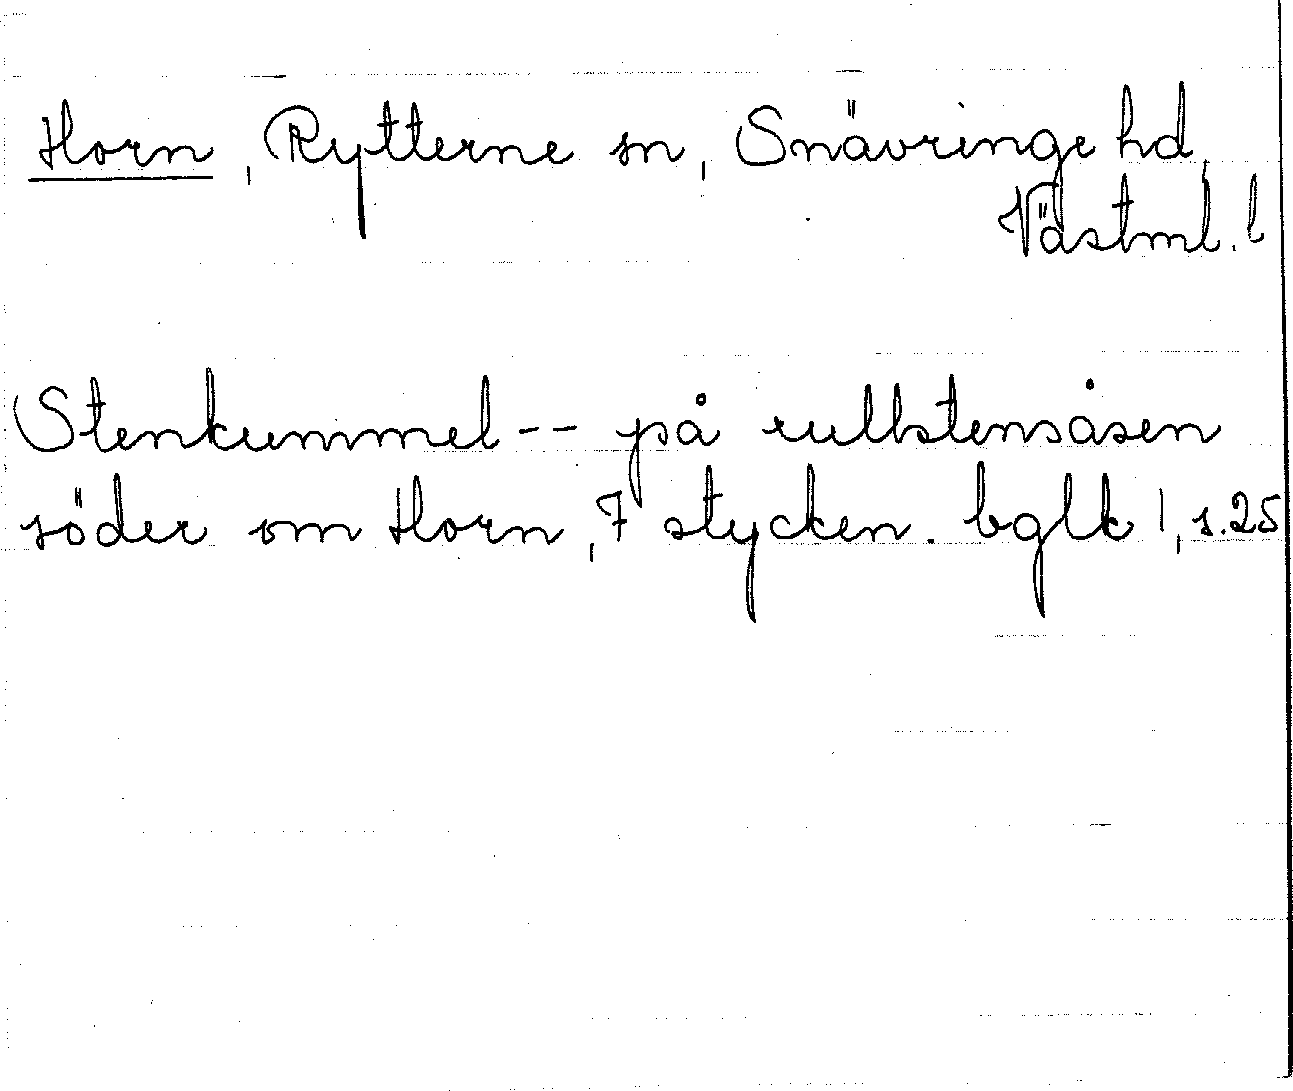 Horn, Rytterne sn, Snävringe hd,
Västml. l
Stenkummel -- på rullstensåsen
söder om Horn, 7 stycken. bglk 1, s.25